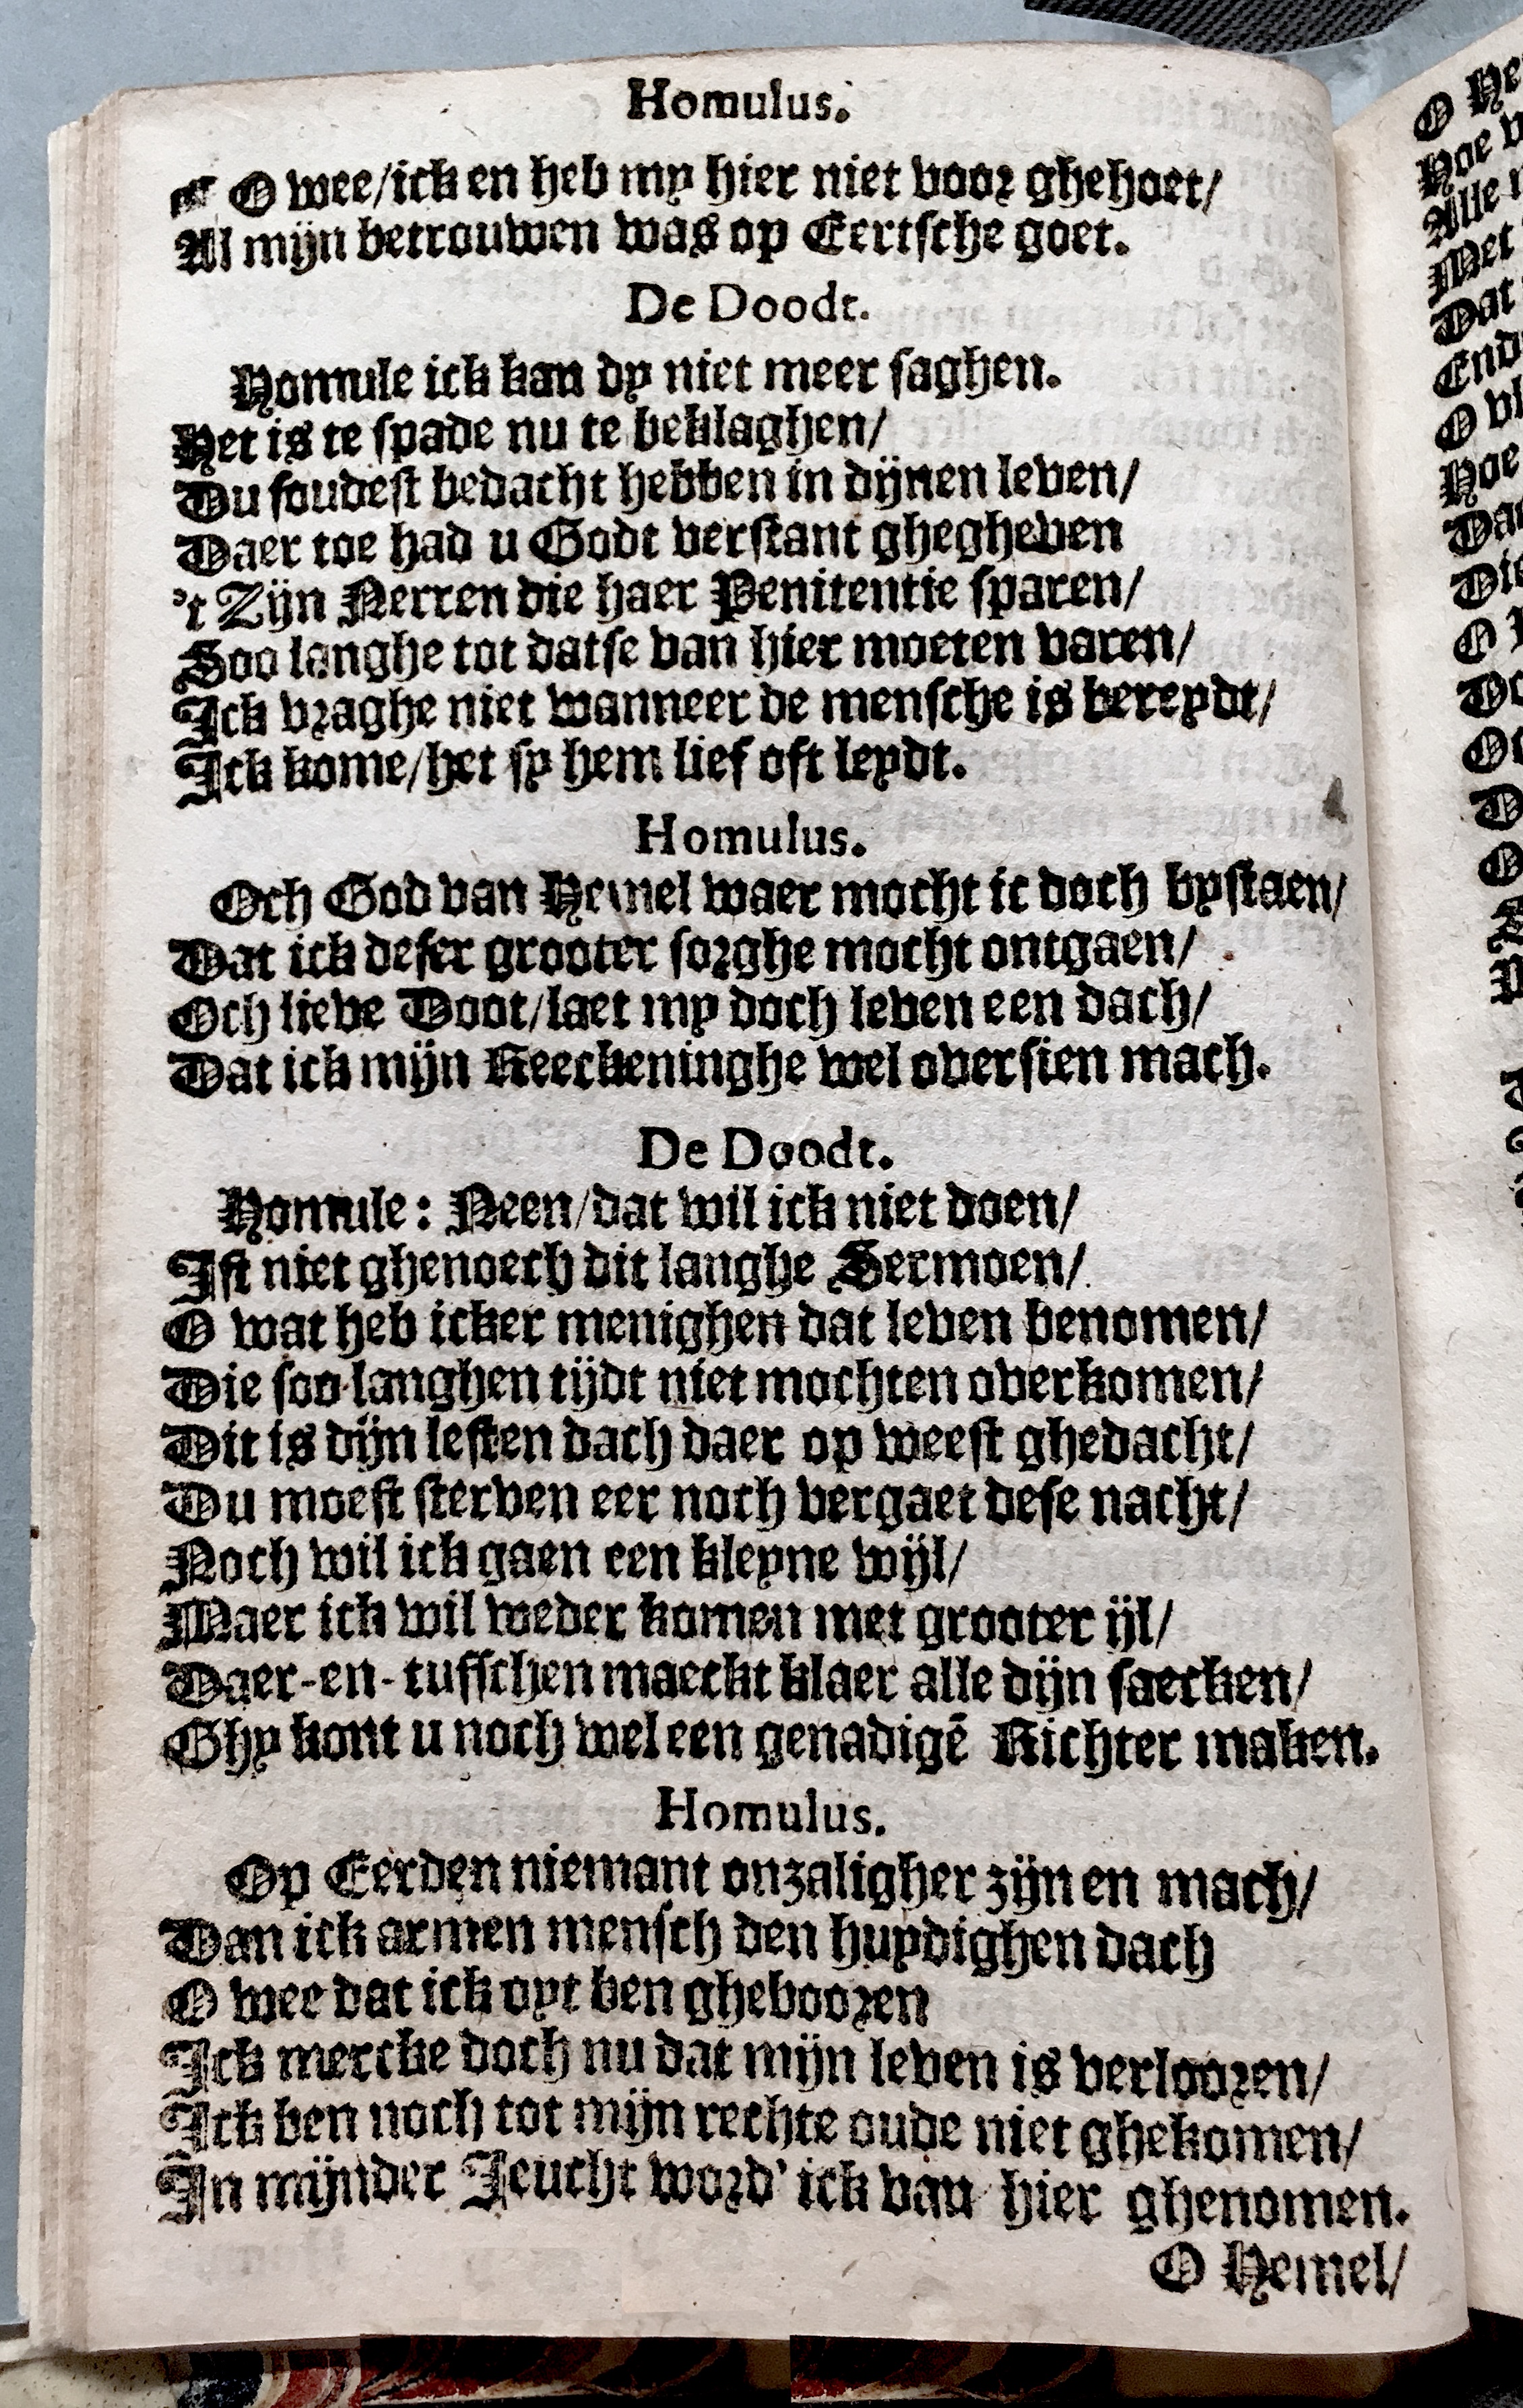 Homulus.
¶ O wee/ick en heb my hier niet voor ghehoet/
Al mijn betrouwen was op Eertsche goet.
De Doodt.
Homule ick kan dy niet meer saghen.
Het is te spade nu te beklaghen/
Du soudest bedacht hebben in dijnen leven/
Daer toe had u Godt verstant ghegheven
't Zijn Nerren die haer Penitentie sparen/
Soo langhe tot datse van hier moeten varen/
Ick vraghe niet wanneer de mensche is bereydt/
Ick kome/het sy hem lief oft leydt.
Homulus.
Och God van Hemel waer mocht ic doch bystaen/
Dat ick deser grooter sorghe mocht ontgaen/
Och lieve Doot/laet my doch leven een dach/
Dat ick mijn Reeckeninghe wel oversien mach.
De Doodt.
Homule: Neen/dat wil ick niet doen/
Ist niet ghenoech dit langhe Sermoen/
O wat heb icker menighen dat leven benomen/
Die soo langhen tijdt niet mochten overkomen/
Dit is dijn lesten dach daer op weest ghedacht/
Du moest sterven eer noch vergaet dese nacht/
Noch wil ick gaen een kleyne wijl/
Maer ick wil weder komen met grooter ijl/
Daer-en-tusschen maeckt klaer alle dijn saecken/
Ghy kont u noch wel een genadigē Richter maken.
Homulus.
Op Eerden niemant onzaligher zijn en mach/
Dan ick armen mensch den huydighen dach
O wee dat ick oyt ben ghebooren
Ick mercke doch nu dat mijn leven is verlooren/
Ick ben noch tot mijn rechte oude niet ghekomen/
In mijnder Jeucht word' ick van hier ghenomen.
O Hemel/